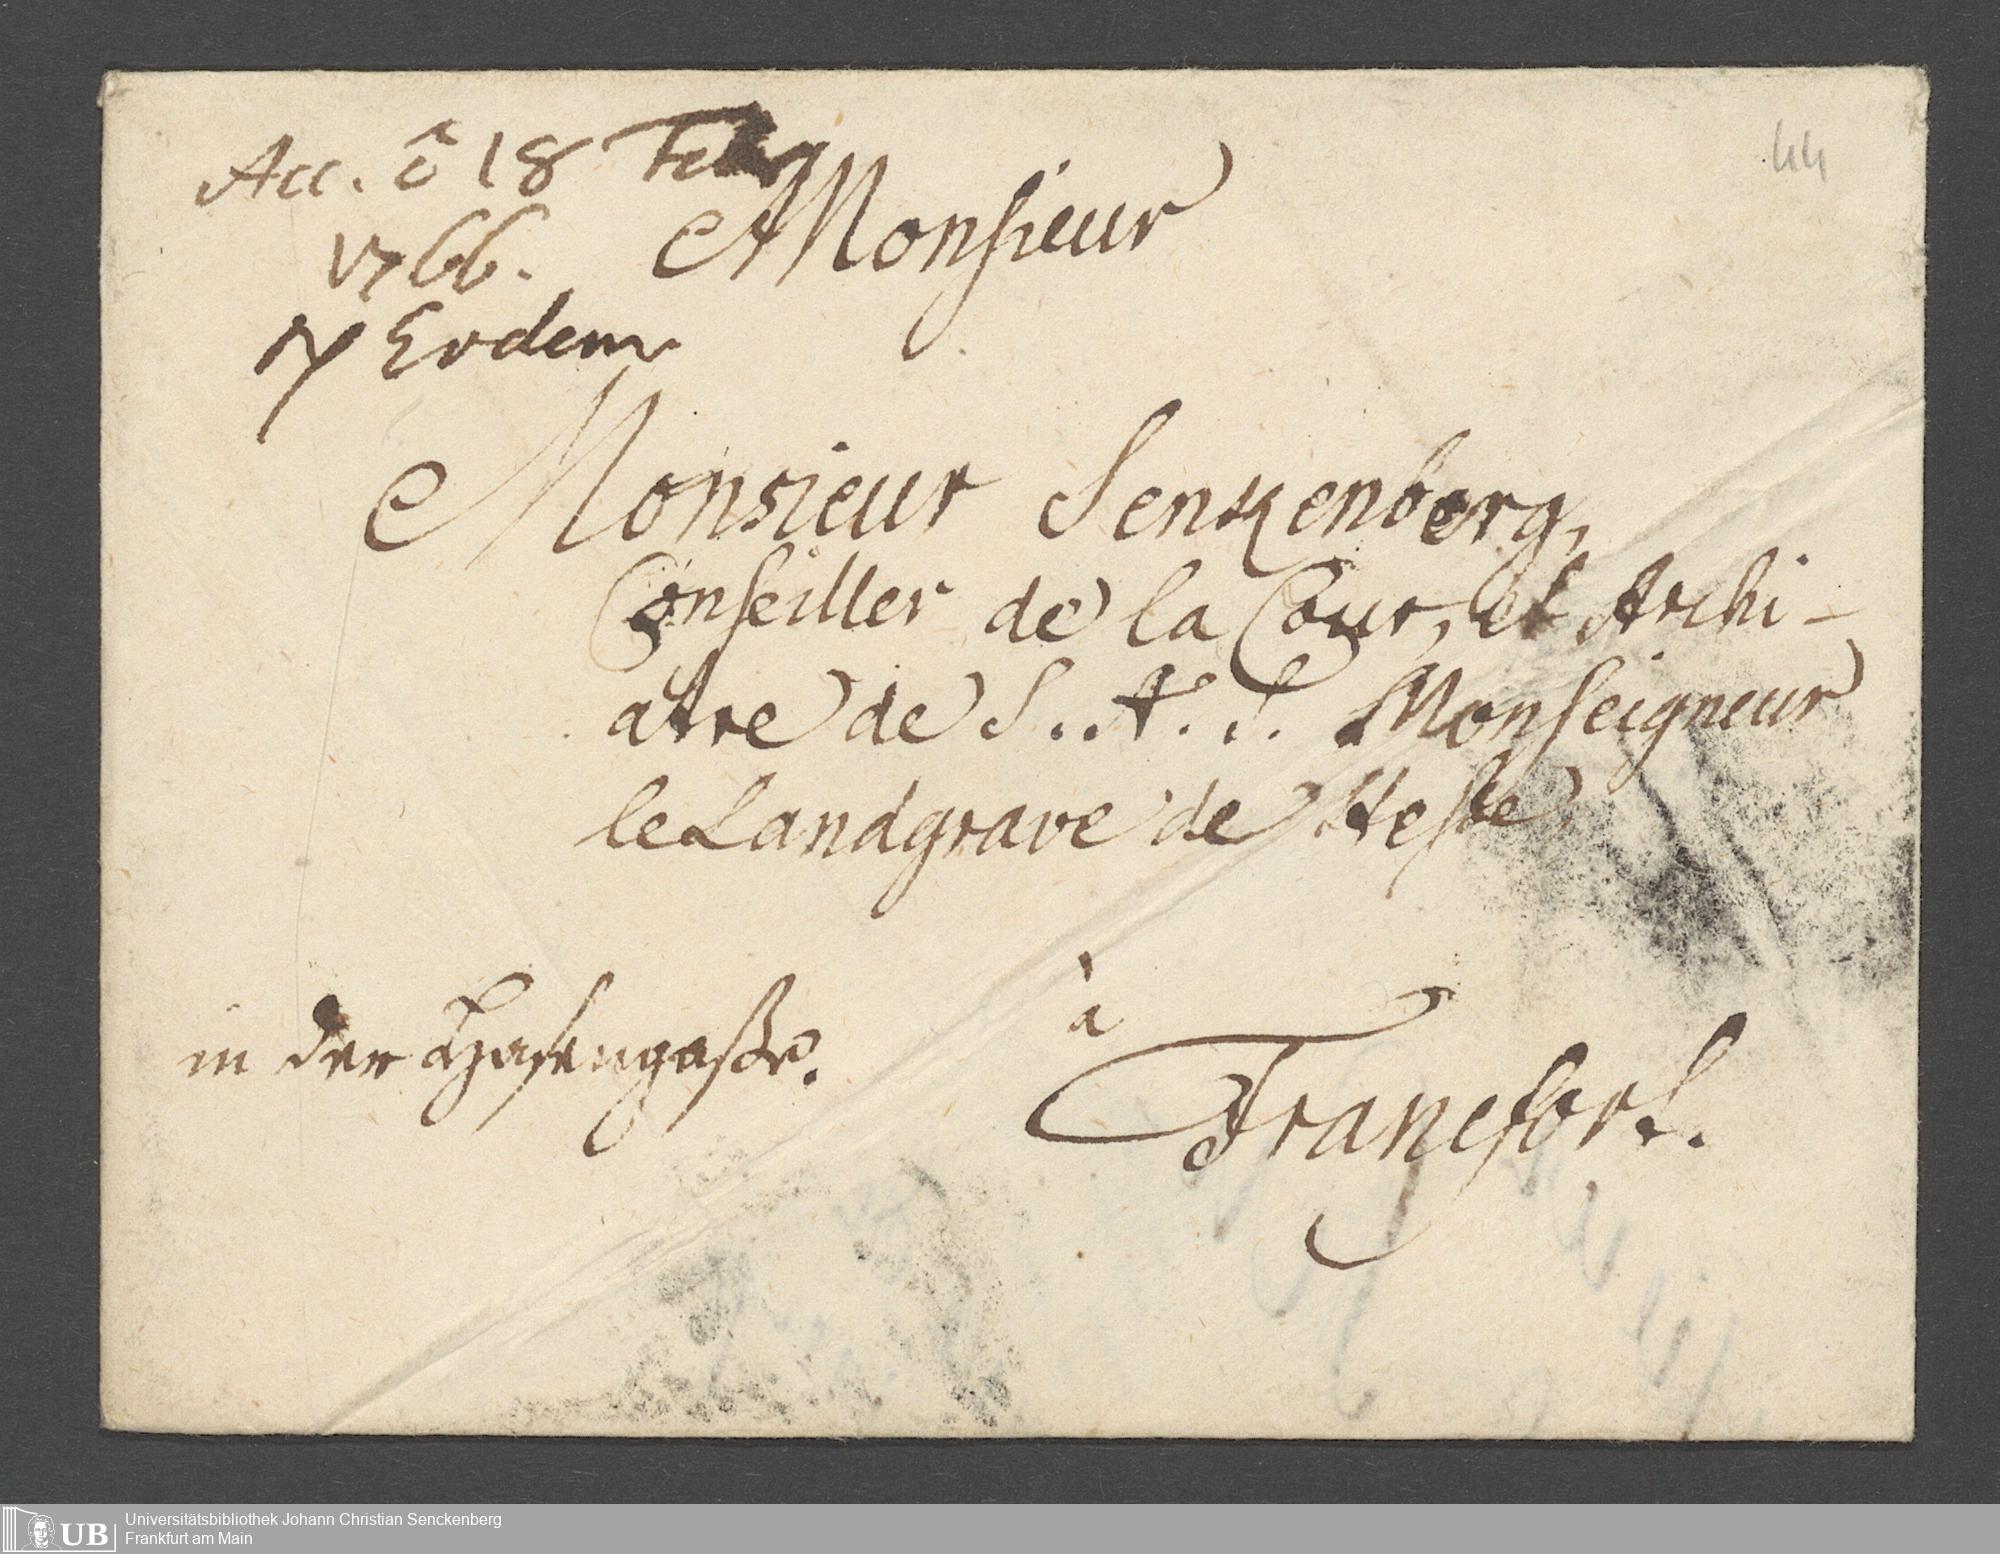 Acc. 18 Febr
1766.
Eodem
44
Monsieur
Monsieur Senkenberg,
Conseiller de la Cour, et Archi-
atre de S. A. S. Monseigneur
le Landgrave de Hesse,
à
in der Hasengaße.
Francfort.
UB
Universitätsbibliothek Johann Christian Senckenberg
Frankfurt am Main